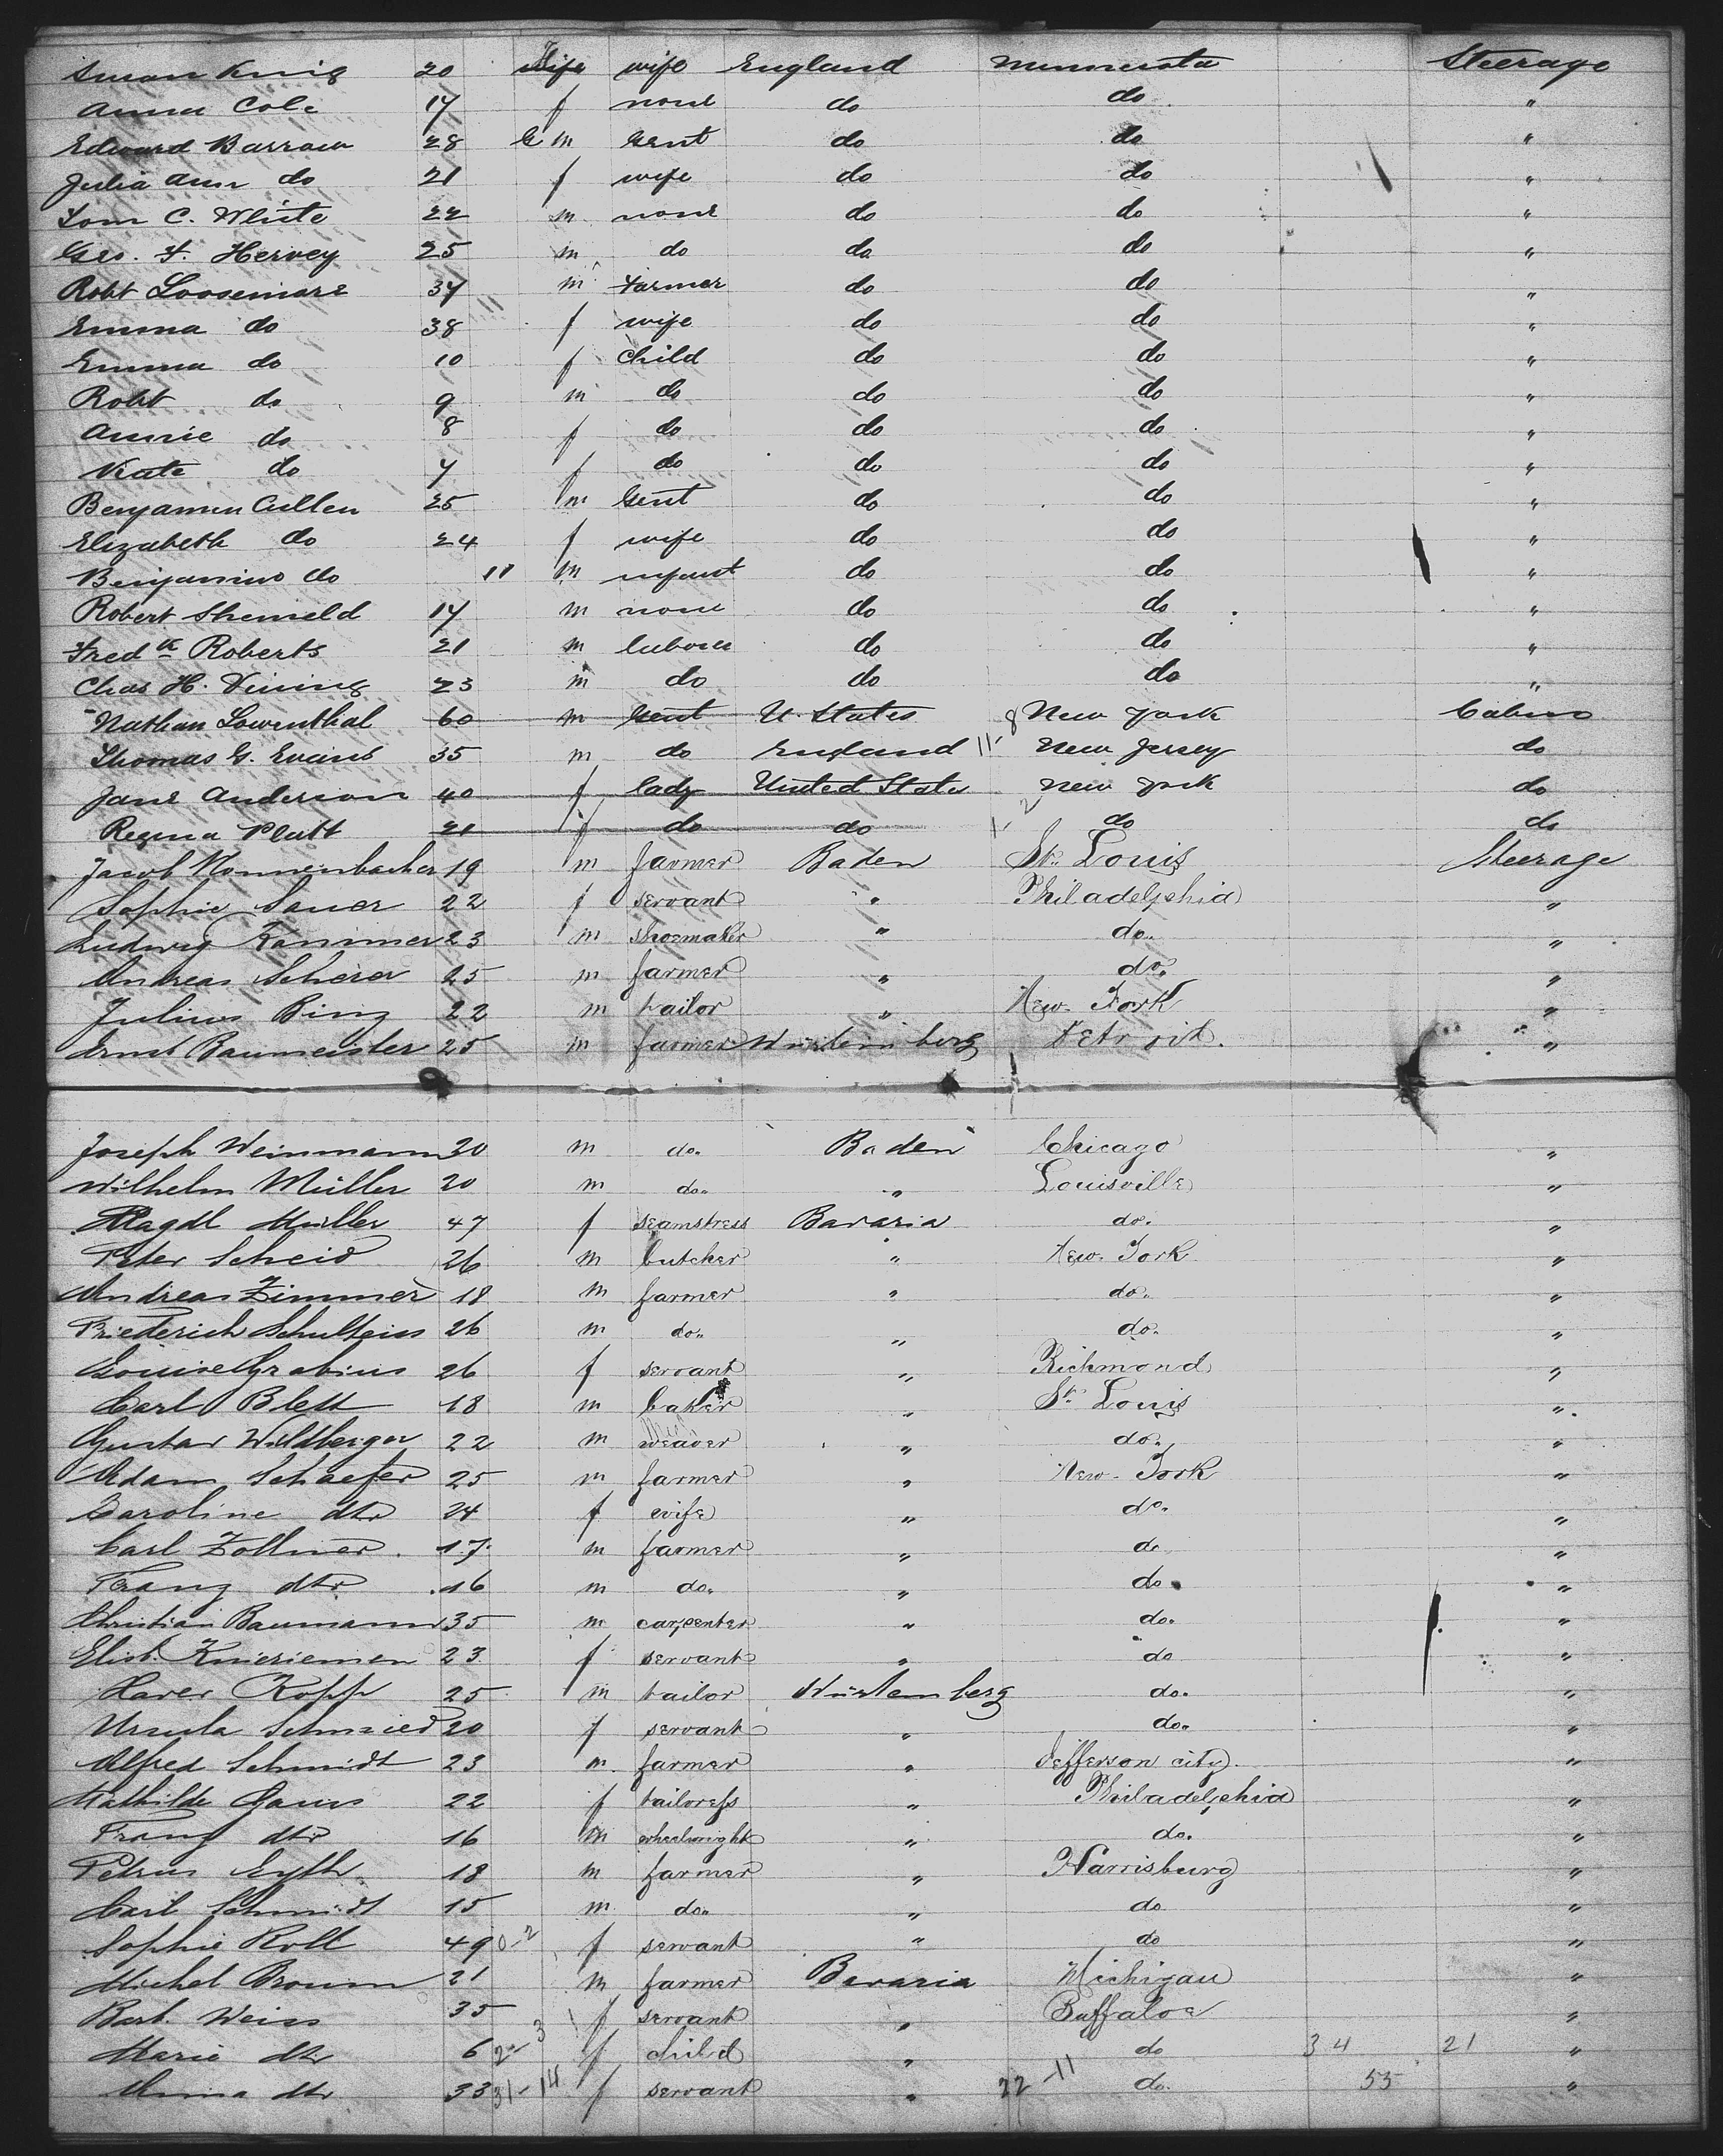 Susan King 20 wife wife England Minnesota Steerage
Anna Cole 17 f none do do "
Edward Barrow 28 G m Gent do do "
Julia Ann do 21 f wife do do "
Tom C. White 22 m none do do "
Geo. F. Hervey 25 m do do do "
Robt Loosemore 37 m Farmer do do "
Emma do 38 f wife do do "
Emma do 10 f child do do "
Robt do 9 m do do do "
Annie do 8 f do do do "
Kate do 7 f do do do "
Benjamin Cullen 25 m Gent do do "
Elizabeth do 24 f wife do do "
Benjamin do 11 m infant do do "
Robert 17 m none do do "
Fredk Roberts 21 m labourer do do "
Chas H. Vining 23 m do do do "
Nathan Lowenthal 60 m Gent U. States 8 New York Cabin
Thomas G. Evans 35 m do England 11 New Jersey do
Jane Anderson 40 f lady United States New York do
Regina Platt 21 f do do do do
Jacob Nonnenbacher 19 m farmer Baden St. Louis Steerage
Sophie Sauer 22 f servant " Philadelphia "
Ludwig Kammer 23 m shoemaker " do. "
Andreas Scherer 25 m farmer " do. "
Julius Bing 22 m tailor " New-York "
Ernst Baumeister 25 m farmer Würtemberg Detroit. "
Joseph Weinmann 30 m do. Baden Chicago "
Wilhelm Müller 20 m do. " Louisville "
Magdl Müller 47 f seamstress Bavaria do. "
Peter Scheid 26 m butcher " New-York "
Andreas Zimmer 18 m farmer " do. "
Friederich Schulteiss 26 m do. " do. "
Louise Grabius 26 f servant " Richmond "
Carl Blett 18 m baker " St. Louis "
Gustav Wildberger 22 m weaver " do. "
Adam Schaefer 25 m farmer " New-York "
Caroline dto 24 f wife " do. "
Carl Zollmer 17 m farmer " do "
Franz dto 16 m do. " do "
Christian Baumann 35 m carpenter " do. "
Elisb. Knieriemen 23 f servant " do "
Xaver Kopp 25 m tailor Würtemberg do. "
Ursula Schmied 20 f servant " do. "
Alfred Schmidt 23 m farmer " Jefferson city. "
Mathilde Gauss 22 f tailoress " Philadelphia "
Franz dto 16 m wheelwright " do. "
Petrus Eyth 18 m farmer " Harrisburg "
Carl Schmidt 15 m do. " do "
Sophie Roll 49 0-2 f servant " do "
Michel Braun 21 m farmer Bavaria Michigan "
Barb. Weiss 35 f servant " Buffaloe "
Marie dto 6 2-3 f child " do 34 21 "
Anna dto 33 31-14 f servant " 22-11 do. 55 "